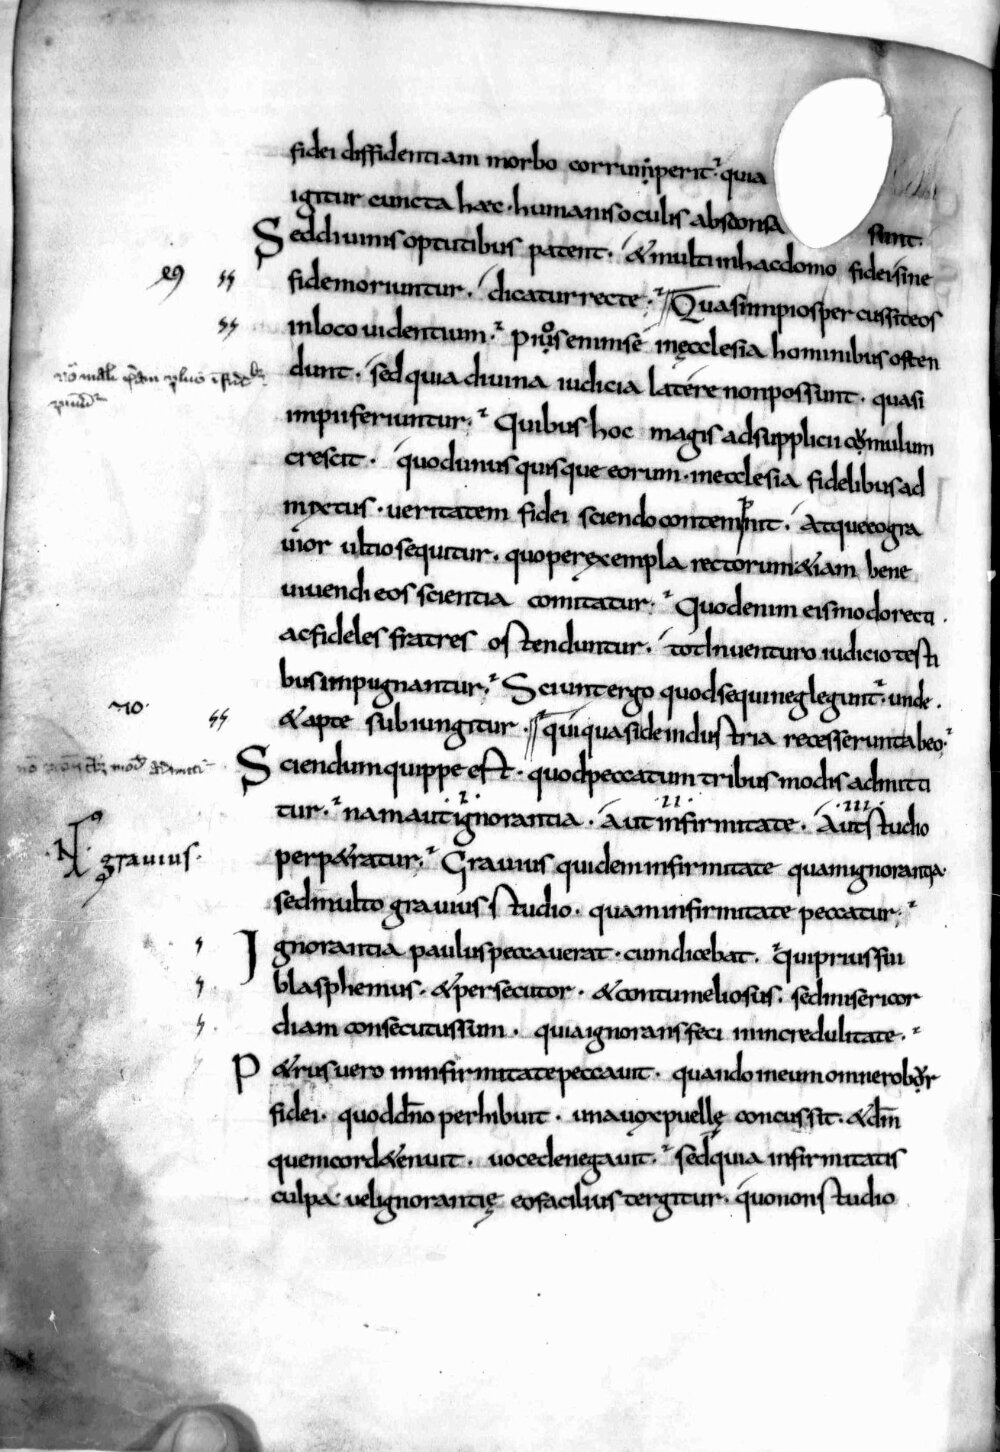 fidei diffidentiam morbo corrumperit· quia
igitur cuncta haec· humanis oculis absconsa sunt·
Sed diuinis optutibus patent· & multi in hac domo fidei sine
fide moriuntur· dicatur recte· Quasi impios percussit eos
in loco uidentium· Pios enim se in ęcclesia hominibus osten
dunt· sed quia diuina iudicia latere non possunt· quasi
impii feriuntur· Quibus hoc magis ad supplicii comulum
crescit· quod unusquisque eorum· in ecclesia fidelibus ad
mixtus· ueritatem fidei sciendo contempnit· Atque eo gra
uior ultio sequitur· quo per exempla rectorum &iam bene
uiuendi eos scientia comitatur· Quod enim eis modo recti·
ac fideles fratres ostenduntur· tot in uenturo iudicio testi
bus impugnantur· Sciunt ergo quod sequi neglegunt· unde·
& apte subiungitur· qui quasi de industria recesserunt ab eo·
Sciendum quippe est· quod peccatum tribus modis admitti
tur· nam aut ignorantia· Aut infirmitate· Aut studio
perp&ratur· Grauius quidem infirmitate quam ignorantia·
sed multo grauius studio· quam infirmitate peccatur·
grauius·
Ignorantia paulus peccauerat· cum dicebat· qui prius fui
blasphemus· & persecutor· & contumeliosus· sed misericor
diam consecutus sum· quia ignorans feci in incredulitate·
P&rus uero in infirmitate peccauit· quando in eum omne robor
fidei· quod dn̄o perhibuit· una uox puellę concussit· & dm̄
quem corde tenuit· uoce denegauit· sed quia infirmitatis
culpa· uel ignorantię eo facilius tergitur· quo non studio